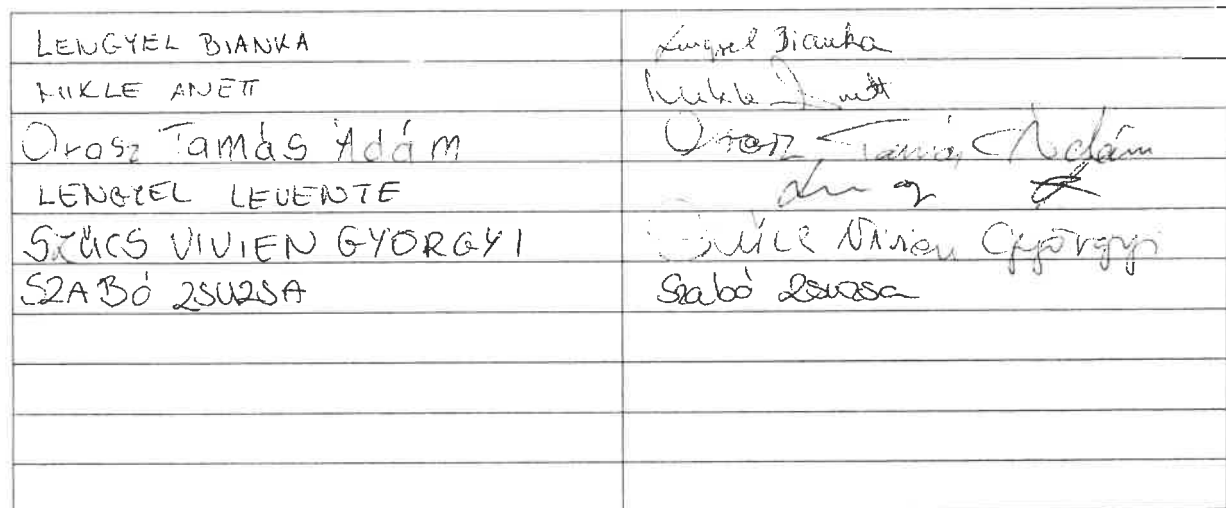 LENGYEL BIANKA Lengyel Bianka
MIKLE ANETT Mikle Anett
Orosz Tamás Ádám Orosz Tamás Ádám
LENGYEL LEVENTE
SZŰCS VIVIEN GYÖRGYI Szűcs Vivien Györgyi
SZABÓ ZSUZSA Szabó Zsuzsa